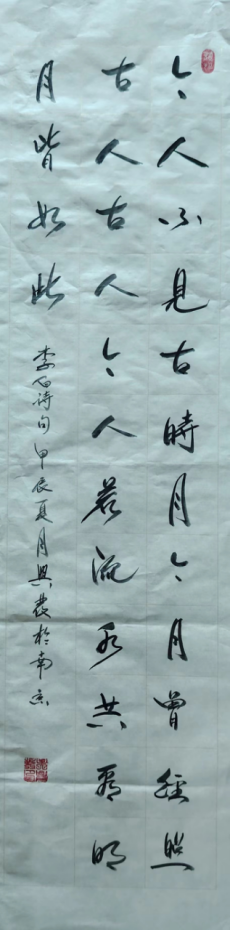 今人不見古時月今月曾經照
古人古人今人若流水共看明
月皆如此
李白詩句甲辰夏月興農於南京